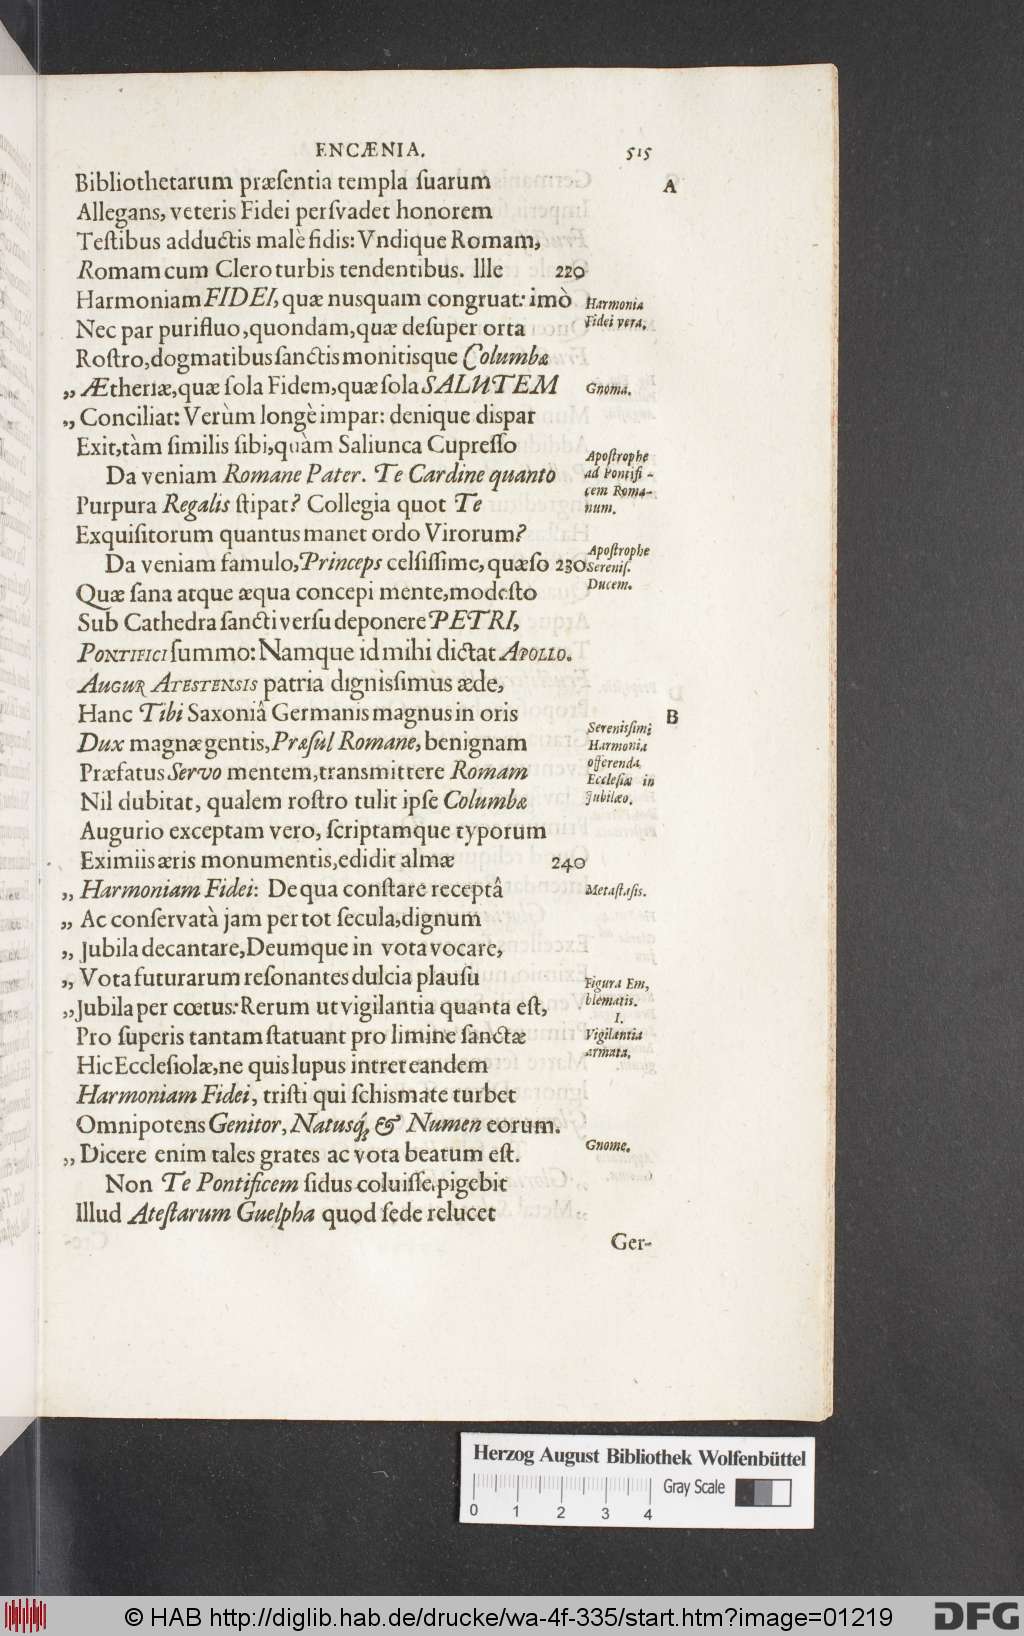 ENCÆNIA. 515
Bibliothetarum præſentia templa ſuarum A
Allegans, veteris Fidei perſvadet honorem
Teſtibus adductis malè fidis: Vndique Romam,
Romam cum Clero turbis tendentibus. Ille 220
Harmoniam FIDEI, quæ nusquam congruat: imò
Harmonia
Fidei vera.
Nec par purifluo, quondam, quæ deſuper orta
Roſtro, dogmatibus ſanctis monitisque Columbæ
„ Ætheriæ, quæ ſola Fidem, quæ ſola SALUTEM Gnoma.
„ Conciliat: Verùm longè impar: denique diſpar
Exit, tàm ſimilis ſibi, quàm Saliunca Cupreſſo
Da veniam Romane Pater. Te Cardine quanto
Apoſtrophe
ad Pontifi-
cem Roma-
num.
Purpura Regalis ſtipat? Collegia quot Te
Exquiſitorum quantus manet ordo Virorum?
Da veniam famulo, Princeps celſiſſime, quæſo 230
Apoſtrophe
Sereniſ.
Ducem.
Quæ ſana atque æqua concepi mente, modeſto
Sub Cathedra ſancti verſu deponere PETRI,
PONTIFICI ſummo: Namque id mihi dictat APOLLO.
AUGUR ATESTENSIS patria digniſſimus æde,
Hanc Tibi Saxoniâ Germanis magnus in oris B
Dux magnæ gentis, Præſul Romane, benignam
Sereniſſimi
Harmonia
offerenda
Eccleſiæ in
Jubilæo.
Præfatus Servo mentem, transmittere Romam
Nil dubitat, qualem roſtro tulit ipſe Columbæ
Augurio exceptam vero, ſcriptamque typorum
Eximiis æris monumentis, edidit almæ 240
„ Harmoniam Fidei: De qua conſtare receptâ Metaſtaſis.
„ Ac conſervatà jam per tot ſecula, dignum
„ Jubila decantare, Deumque in vota vocare,
„ Vota futurarum reſonantes dulcia plauſu
„ Jubila per cœtus: Rerum ut vigilantia quanta eſt,
Figura Em,
blematis.
I.
Vigilantia
armata.
Pro ſuperis tantam ſtatuant pro limine ſanctæ
Hic Eccleſiolæ, ne quis lupus intret eandem
Harmoniam Fidei, triſti qui ſchismate turbet
Omnipotens Genitor, Natusq́;, & Numen eorum.
„ Dicere enim tales grates ac vota beatum eſt. Gnome.
Non Te Pontificem ſidus coluiſſe pigebit
Illud Ateſtarum Guelpha quod ſede relucet
Ger-
Herzog August Bibliothek Wolfenbüttel
Gray Scale
0 1 2 3 4
© HAB http://diglib.hab.de/drucke/wa-4f-335/start.htm?image=01219 DFG